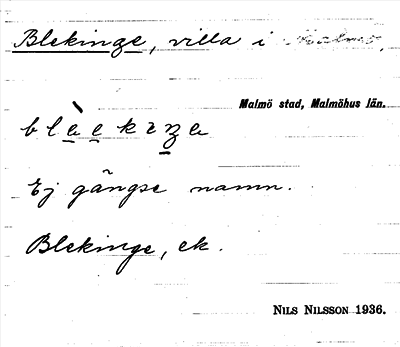 Blekinge, villa i Malmö.
Malmö stad, Malmöhus län.
Ej gängse namn.
Blekinge, ek.
NILS NILSSON 1936.